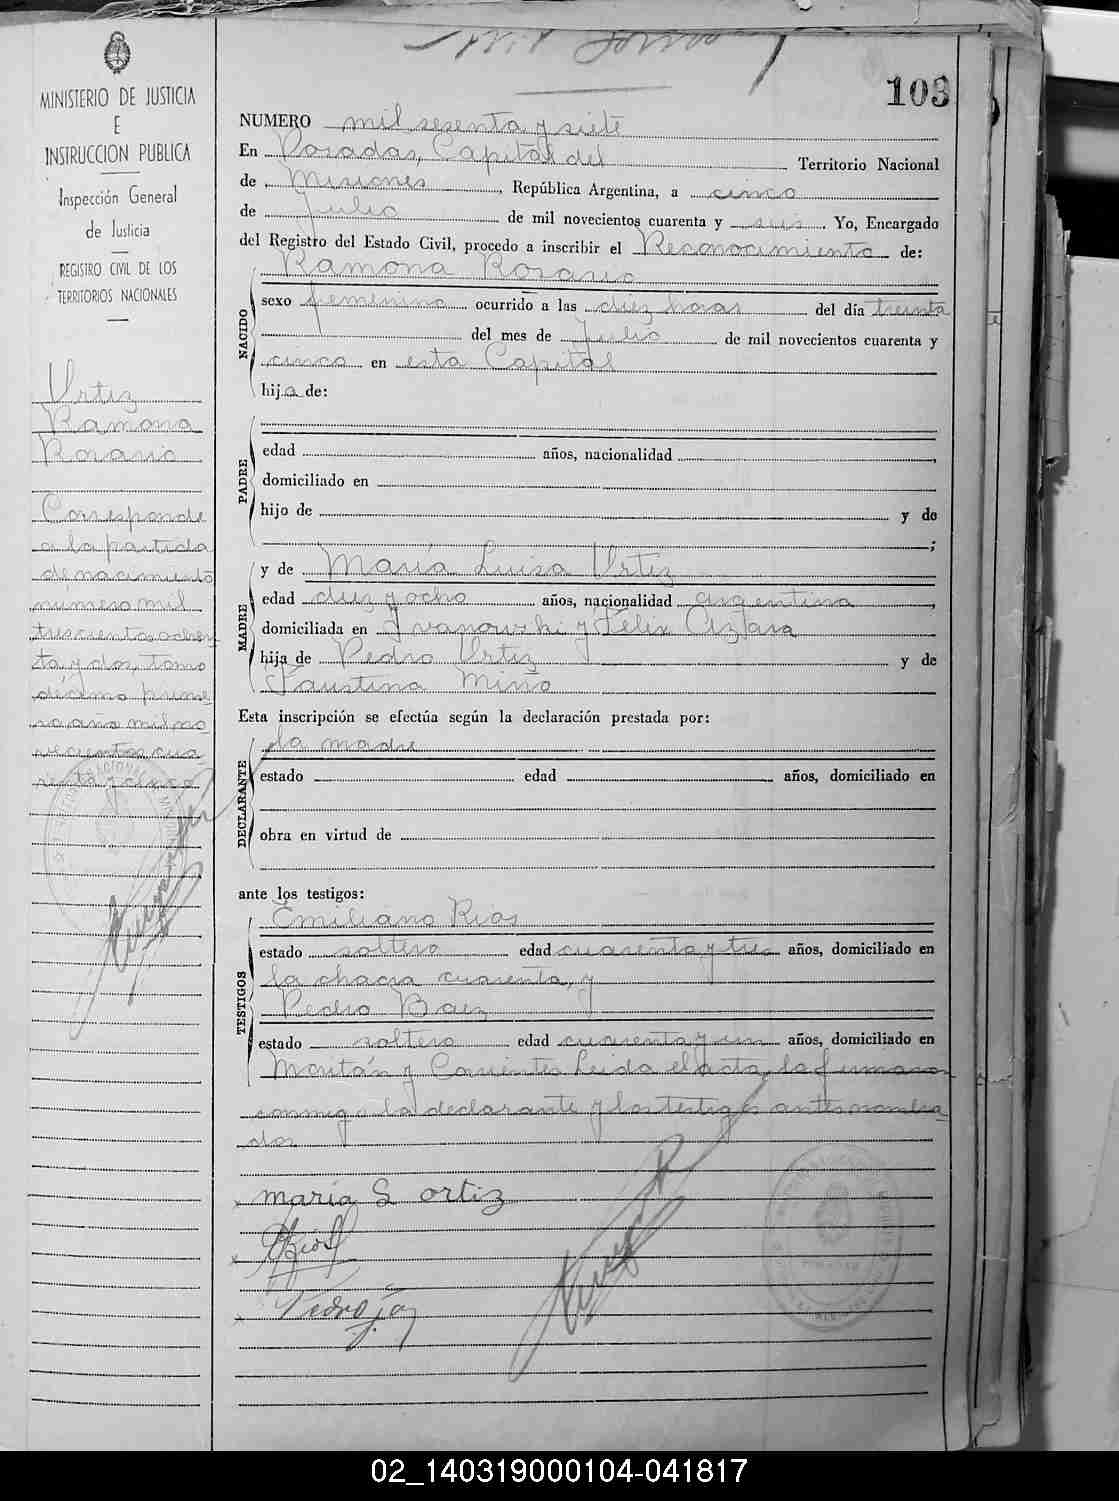 MINISTERIO DE JUSTICIA
E
INSTRUCCION PUBLICA
Inspección General
de Justicia
REGISTRO CIVIL DE LOS
TERRITORIOS NACIONALES
Ortiz
Ramona
Rosario
Corresponde
a la partida
de nacimiento
número mil
trescientos ochen
ta y dos, tomo
décimo prime
ro año mil no
vecientos cua
renta y cinco
103
NUMERO mil sesenta y siete
En Posadas, Capital del Territorio Nacional
de Misiones, República Argentina, a cinco
de Julio de mil novecientos cuarenta y seis. Yo, Encargado
del Registro del Estado Civil, procedo a inscribir el Reconocimiento de:
Ramona Rosario
NACIDO
sexo femenino ocurrido a las diez horas del día treinta
del mes de Julio de mil novecientos cuarenta y
cinco en esta Capital
hija de:
PADRE
edad años, nacionalidad ,
domiciliado en
hijo de y de
;
MADRE
y de María Luisa Ortiz
edad diez y ocho años, nacionalidad argentina,
domiciliada en Ivanowski y Félix Azara
hija de Pedro Ortiz y de
Faustina Miño
Esta inscripción se efectúa según la declaración prestada por:
DECLARANTE
la madre
estado edad años, domiciliado en
obra en virtud de
ante los testigos:
TESTIGOS
Emiliano Rios
estado soltero edad cuarenta y tres años, domiciliado en
la chacra cuarenta, y
Pedro Baez
estado soltero edad cuarenta y un años, domiciliado en
y Corrientes Leida el acta, la firmaron
conmigo la declarante y los testigos antes nombra
dos
maria L ortiz
Rios
Pedro
02_140319000104-041817